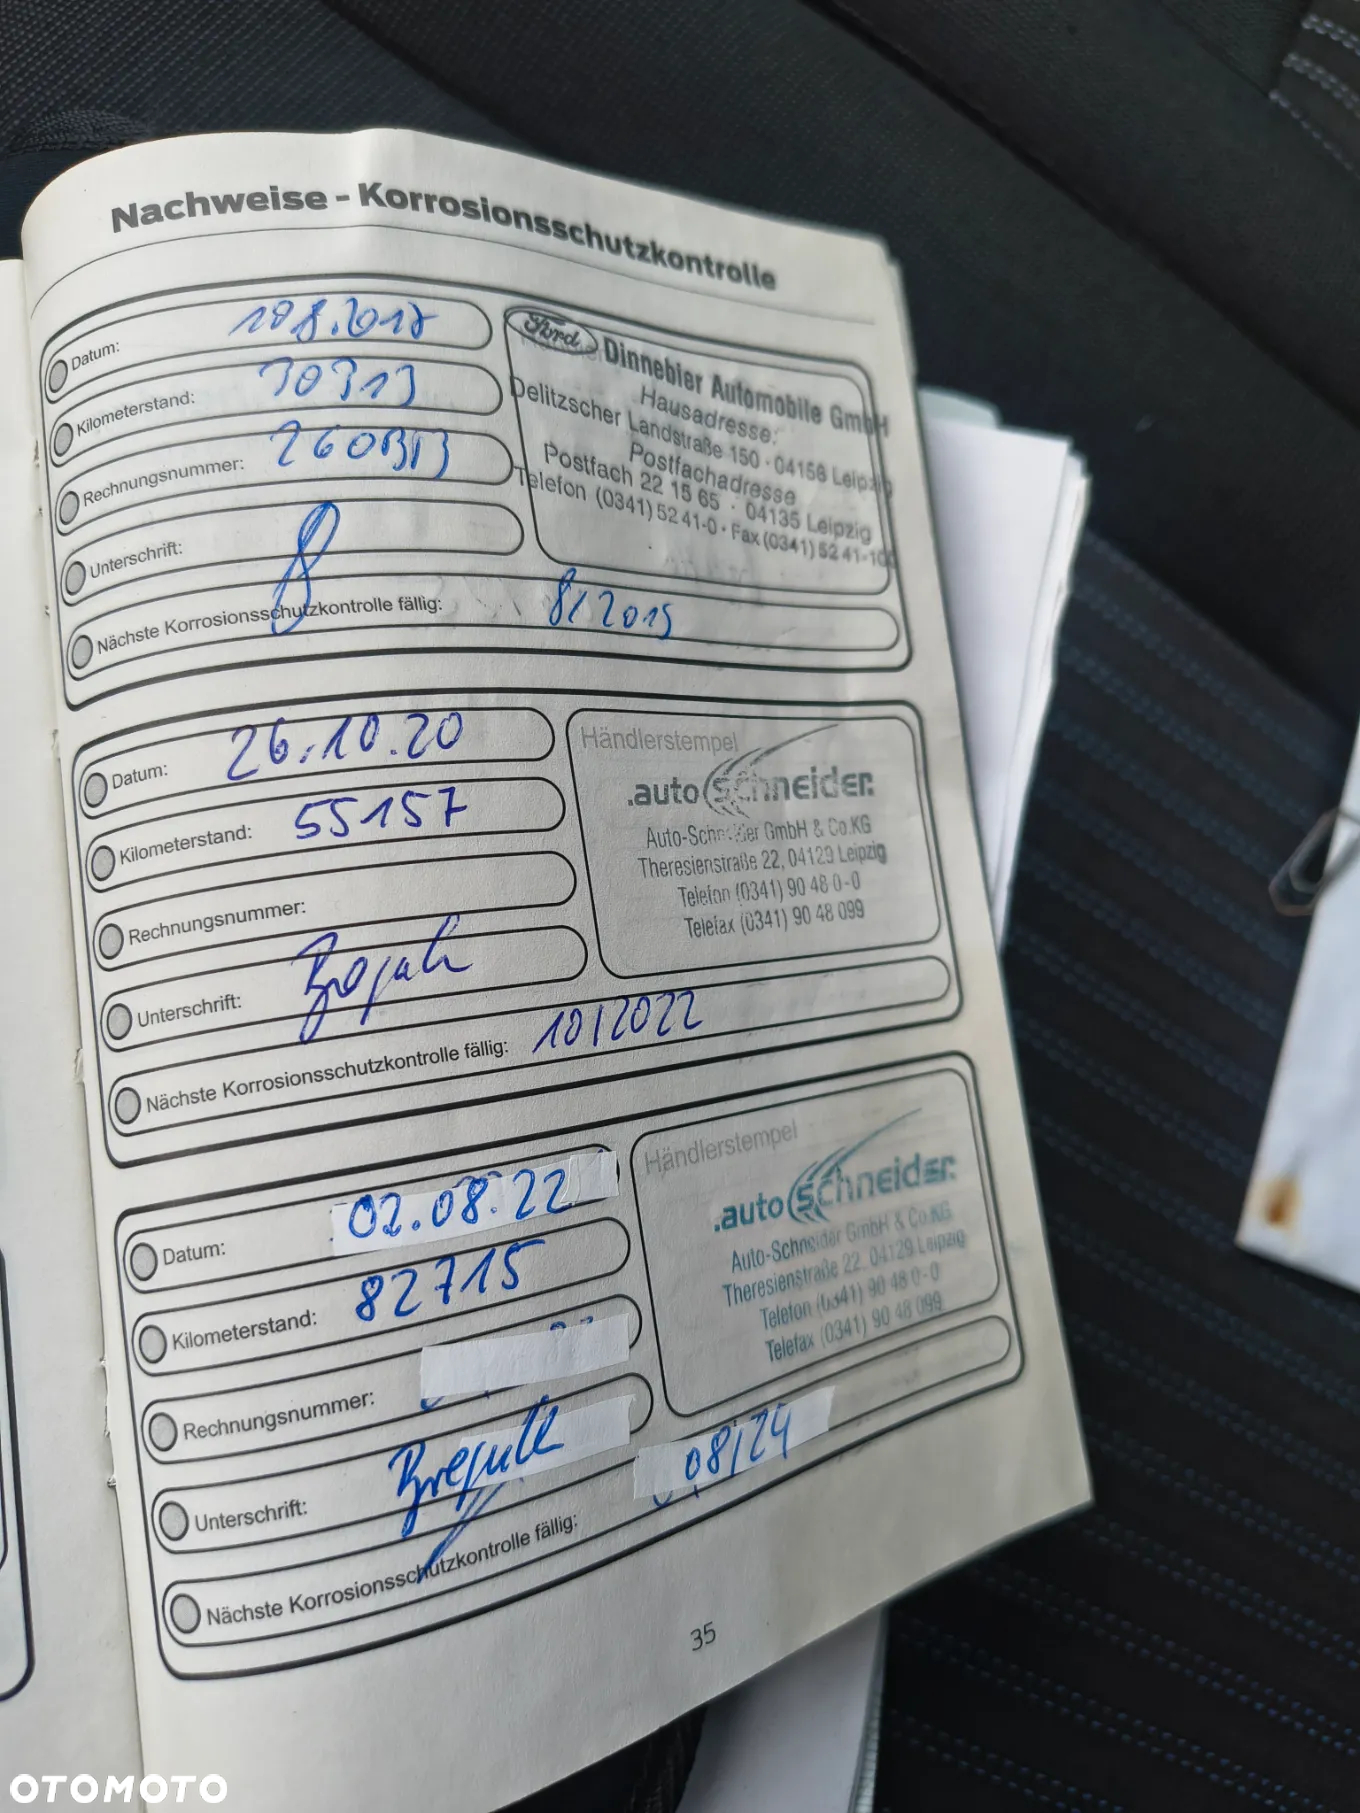 Nachweise - Korrosionsschutzkontrolle
Datum:
Kilometerstand: 30313
Rechnungsnummer:
Unterschrift:
Nächste Korrosionsschutzkontrolle fällig: 8/2019
Ford Dinnebier Automobile GmbH
Hausadresse:
Delitzscher Landstraße 150 · 04158 Leipzig
Postfachadresse
Postfach 22 15 65 · 04135 Leipzig
Telefon (0341) 52 41-0 · Fax (0341) 52 41-100
Datum: 26.10.20
Kilometerstand: 55157
Rechnungsnummer:
Unterschrift:
Nächste Korrosionsschutzkontrolle fällig: 10/2022
Händlerstempel
.auto Schneider.
Auto-Schneider GmbH & Co.KG
Theresienstraße 22, 04129 Leipzig
Telefon (0341) 90 48 0-0
Telefax (0341) 90 48 099
Datum: 02.08.22
Kilometerstand: 82715
Rechnungsnummer:
Unterschrift:
Nächste Korrosionsschutzkontrolle fällig: 08/24
Händlerstempel
.auto Schneider.
Auto-Schneider GmbH & Co.KG
Theresienstraße 22, 04129 Leipzig
Telefon (0341) 90 48 0-0
Telefax (0341) 90 48 099
35
OTOMOTO